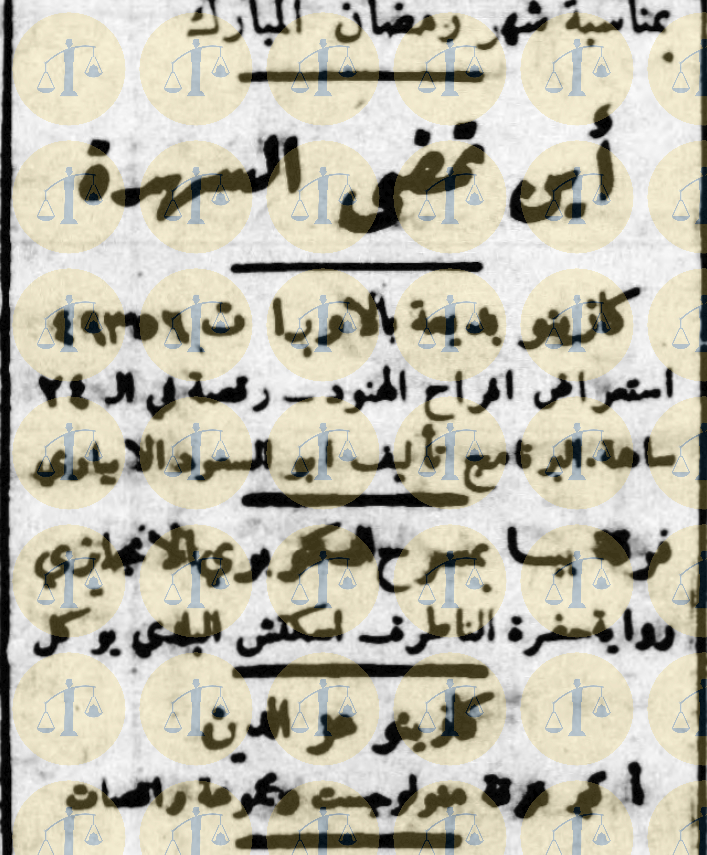 بمناسبة شهر رمضان المبارك
أين تمضى السهرة
كازينو بديعة بالاوبرا ت
استعراض افراح الهنود ــ رقصة في الـ ٢٤
ساعة. البرنامج تأليف ابو السعود الابياري
فرقة ببا بمسرح الكورسال الانجليزي
رواية حضرة الناظر في اسكتش البلدي يوكل
كازينو عز الدين
أكبر فرقة منولوجست ومجموعة راقصات